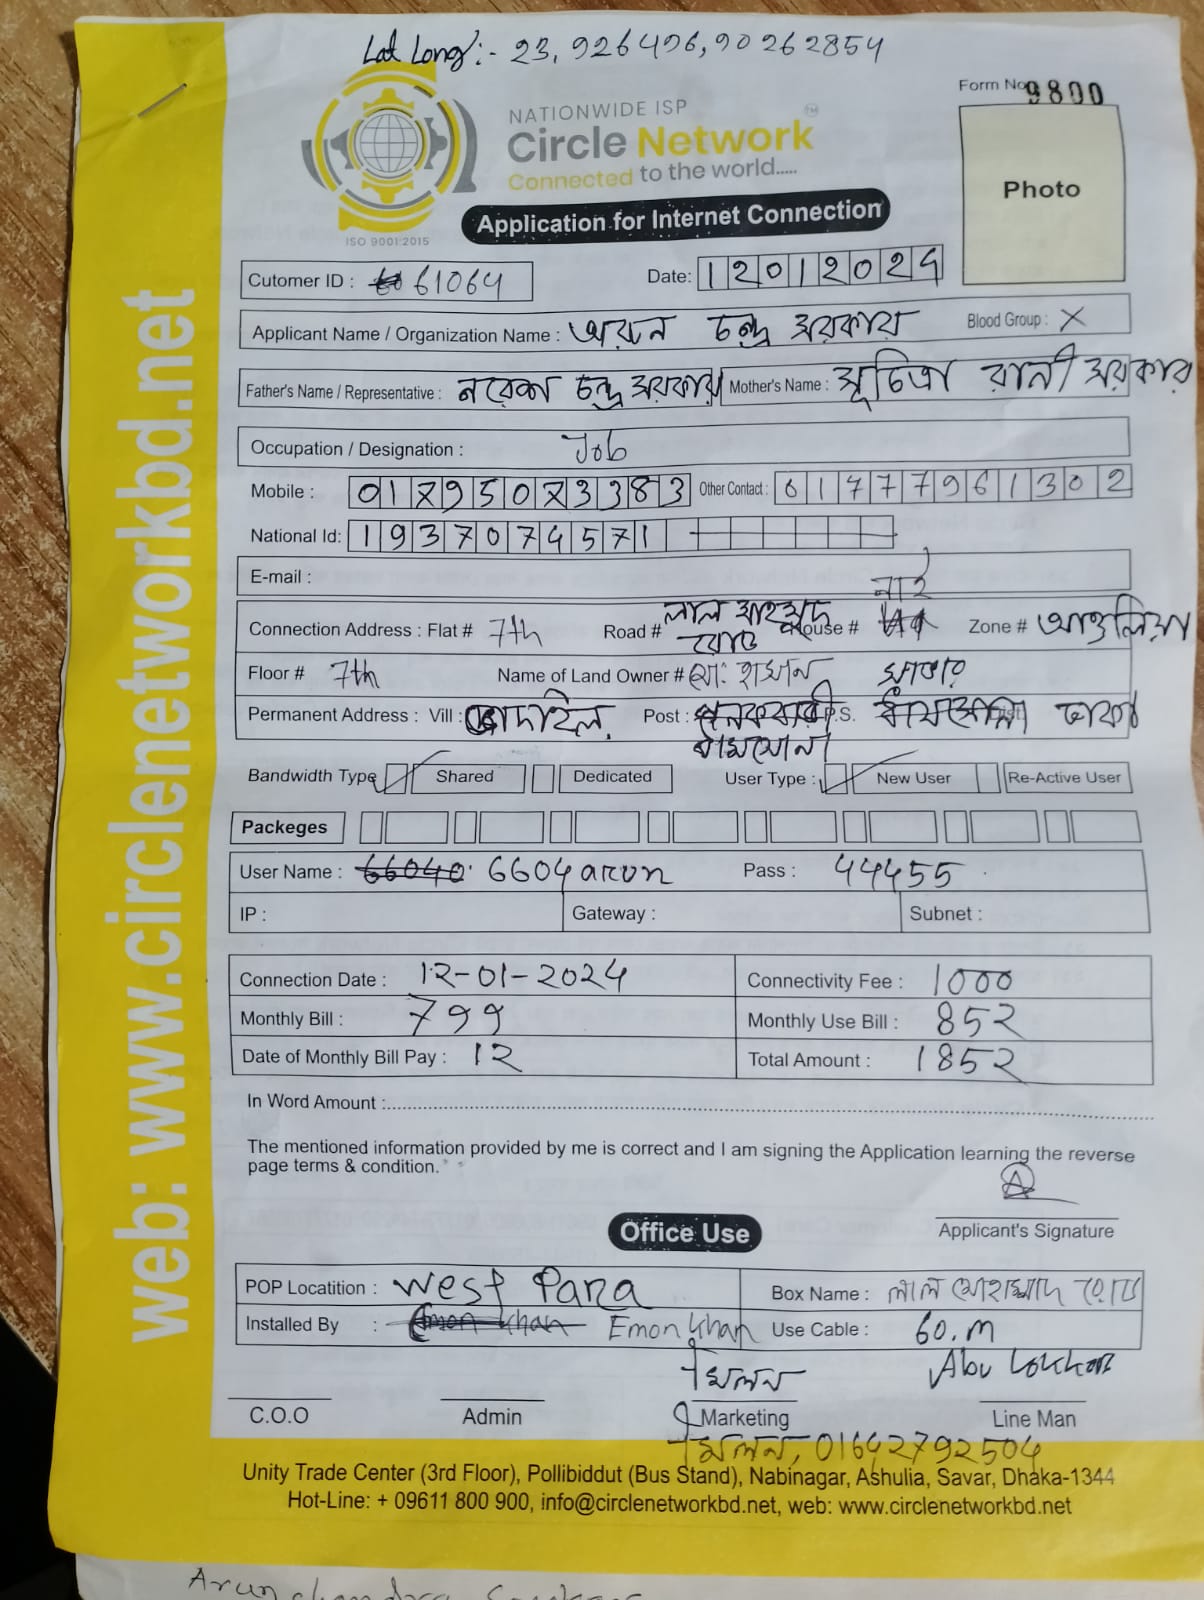 Lat Long:- 23.926496,90262854
Form No 9800
NATIONWIDE ISP
Circle Network
TM
Connected to the world.....
Photo
ISO 9001:2015
Application for Internet Connection
Cutomer ID : 61064
Date: 12012024
Applicant Name / Organization Name : অরুন চন্দ্র সরকার
Blood Group : X
Father's Name / Representative : নরেশ চন্দ্র সরকার Mother's Name : সুচিত্রা রানী সরকার
Occupation / Designation : Job
Mobile : 01795073383 Other Contact : 01777961302
National Id: 1937074571
E-mail :
নাই
Connection Address : Flat # 7th Road # লাল মাহমুদ রোড House # Zone # আশুলিয়া
Floor # 7th Name of Land Owner # মো: হাসান সাভার
Permanent Address : Vill : Post : P.S. Dist ঢাকা
Bandwidth Type Shared Dedicated User Type : New User Re-Active User
Packeges
User Name : 66040 6604arun Pass : 44455
IP : Gateway : Subnet :
Connection Date : 12-01-2024 Connectivity Fee : 1000
Monthly Bill : 799 Monthly Use Bill : 852
Date of Monthly Bill Pay : 12 Total Amount : 1852
In Word Amount :
The mentioned information provided by me is correct and I am signing the Application learning the reverse
page terms & condition.
Applicant's Signature
Office Use
POP Locatition : West Para Box Name : লাল মোহাম্মাদ রোড
Installed By : Emon khan Emon khan Use Cable : 60.m
মিলন Abu
C.O.O Admin Marketing Line Man
মিলন, 01642792504
Unity Trade Center (3rd Floor), Pollibiddut (Bus Stand), Nabinagar, Ashulia, Savar, Dhaka-1344
Hot-Line: + 09611 800 900, info@circlenetworkbd.net, web: www.circlenetworkbd.net
web: www.circlenetworkbd.net
Arun chandra